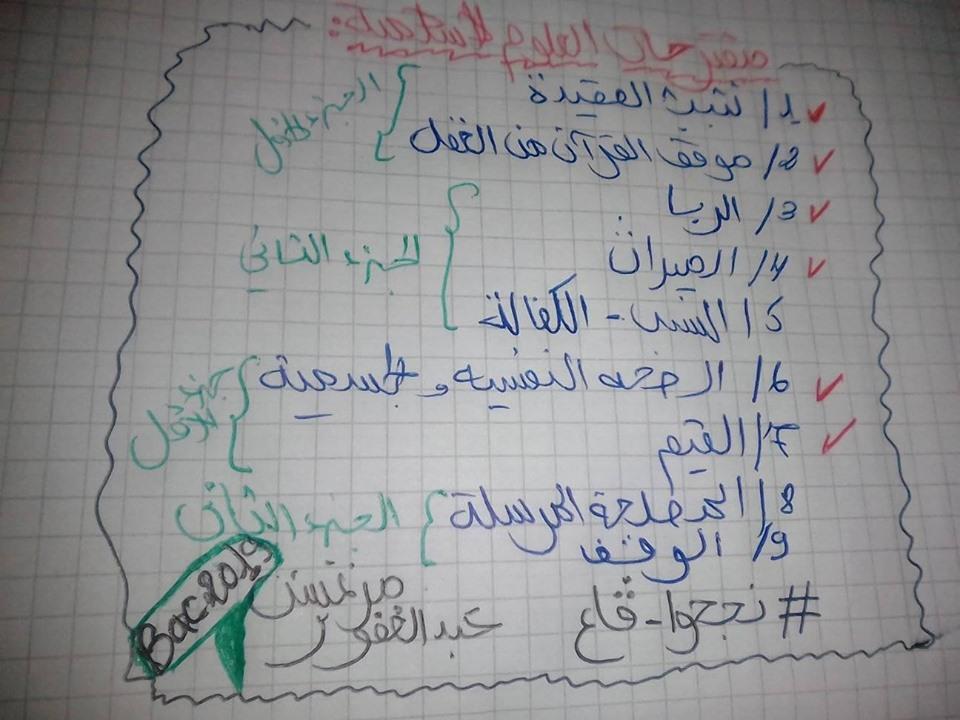 مقترحات العلوم الإسلامية:
1/ تثبيت العقيدة
2/ موقف القرآن من العقل
الجزء الأول
3/ الربا
4/ الميراث
5/ النسب - الكفالة
الجزء الثاني
6/ الصحة النفسية و الجسمية
7/ القيم
الجزء الأول
8/ المصلحة المرسلة
9/ الوقف
الجزء الثاني
# نجحوا - قاع
عبد الغفور
Bac 2019